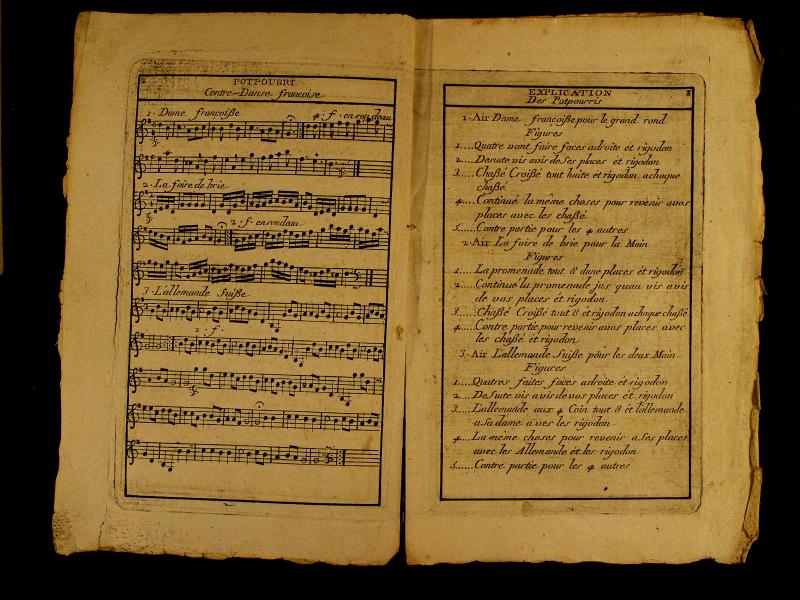 2
POTPOURRI
Contre-Danse francoise
1. Dame francoiße
4. f. en rondeau
2. La foire de brie
2. f. en rondau
3. L'allemande Suiße
2. f.
EXPLICATION
3
Des Potpourris
1. Air Dame francoiße pour le grand rond
Figures
1....Quatre vont faire faces adroite et rigodon
2....Desuite vis avis de Ses places et rigodon
3....Chaßé Croißé tout huite et rigodon a chaque
chaßé
4....Continué la même choses pour revenir avos
places avec les chaßé
5.....Contre partie pour les 4 autres
2. Air La foire de brie pour la Main
Figures
1....La promenade tout 8 dune places et rigodon
2....Continué la promenade jus quau vis avis
de vos places et rigodon
3....Chaßé Croißé tout 8 et rigodon a chaque chaßé
4....Contre partie pour revenir avos places avec
les chaßé et rigodon
3. Air L'allemande Suiße pour les deux Main
Figures
1....Quatres faites faces adroite et rigodon
2....DeSuite vis avis de vos places et rigodon
3....L'allemande aux 4 Coin tout 8 et l'allemande
a Sa dame a'ves les rigodon
4....La meme choses pour revenir a Ses places
avec les Allemande et les rigodon
5.....Contre partie pour les 4 autres